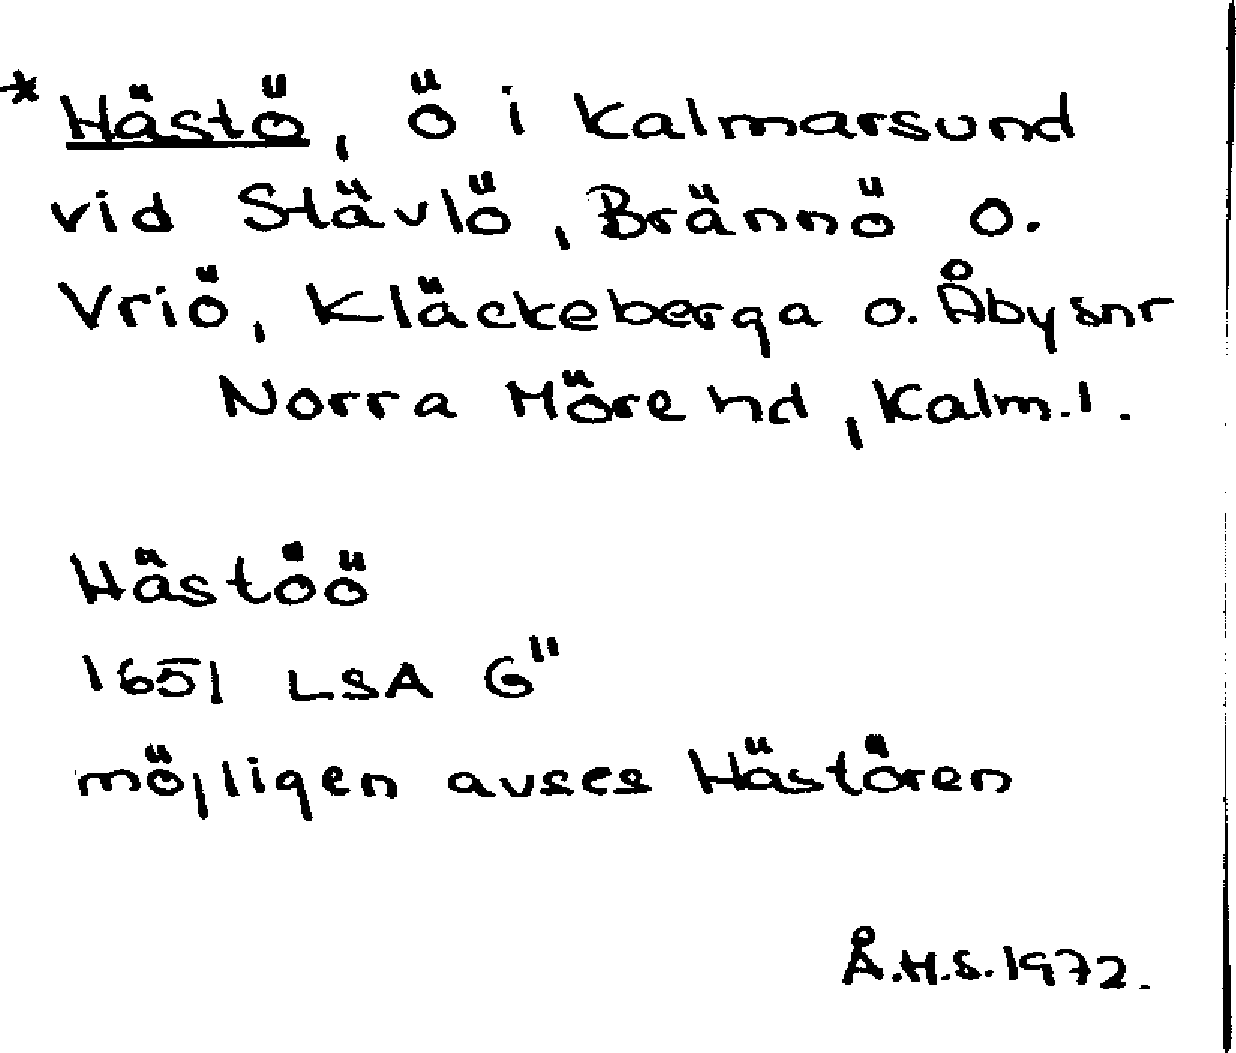 *Hästö, ö i Kalmarsund
vid Stävlö, Brännö o.
Vriö, Kläckeberga o. Åby snr
Norra Möre hd, Kalm.l.
Hästöö
1651 LSA G"
möjligen avses Hästören
Å.H.S.1972.